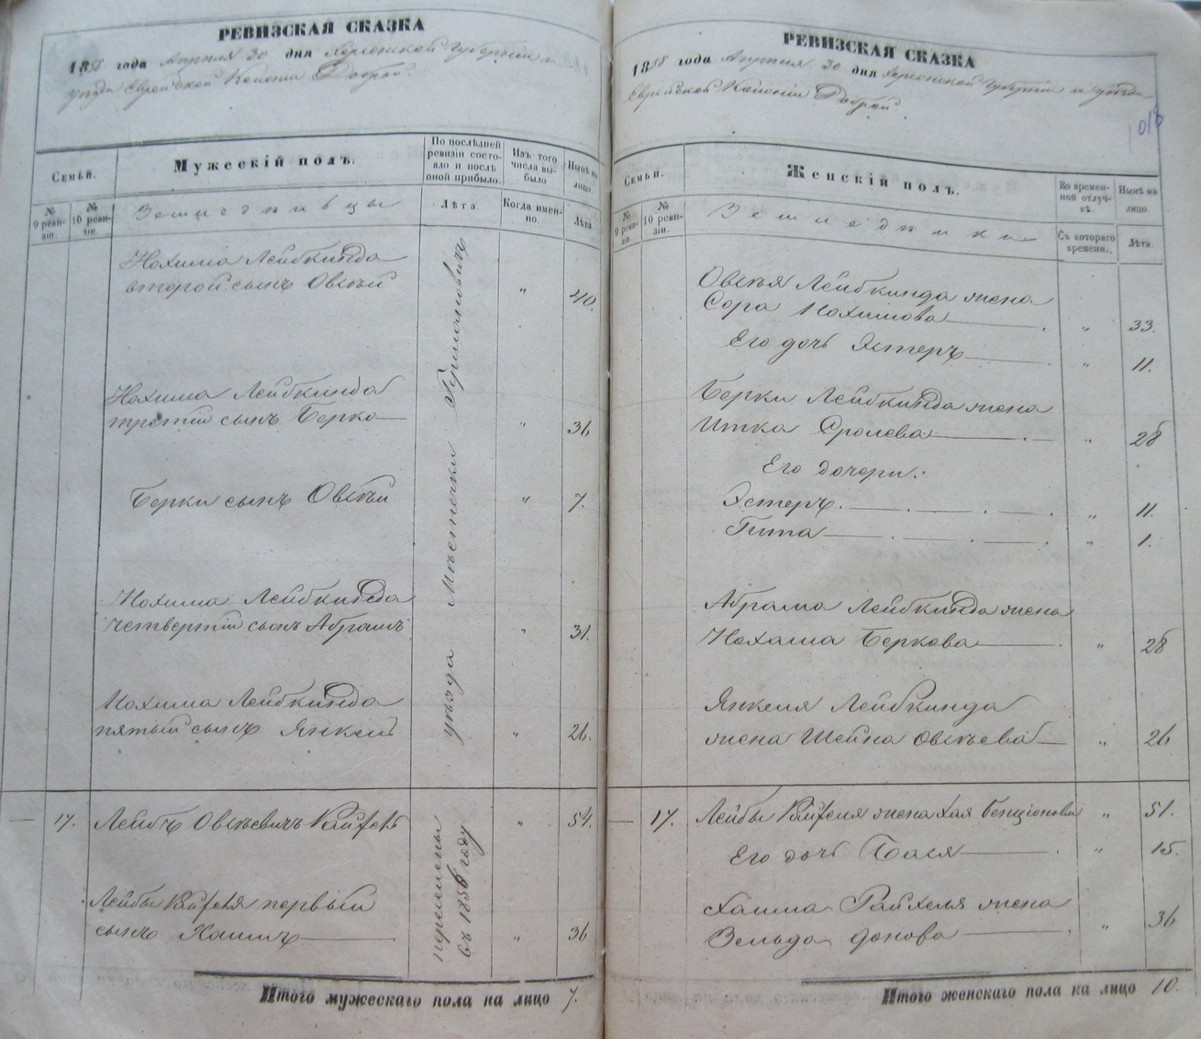 РЕВИЗСКАЯ СКАЗКА
1858 года Апреля 30 дня Херсонской Губерніи и
уезда Еврейской Колоніи Доброй.
Семьи.
Мужескій полъ.
По послѣдней ревизіи состояло и послѣ оной прибыло.
Изъ того числа выбыло
Нынѣ на лицо.
№ 9 ревизіи.
№ 10 ревизіи.
Земледѣльцы
Лѣта.
Когда именно.
Лѣта
Нохима Лейбкинда
второй сынъ Овсѣй „ 40.
Нохима Лейбкинда
третій сынъ Берко „ 36
Берки сынъ Овсѣй „ 7.
Нохима Лейбкинда
четвертій сынъ Абрамъ „ 31.
Нохима Лейбкинда
пятый сынъ Янкель „ 26.
— 17. Лейбъ Овсѣевичъ „ 54.
Лейбы первый
сынъ Хаимъ „ 36
уѣзда Мѣстечка
въ 1856 году
Итого мужескаго пола на лицо 7.
РЕВИЗСКАЯ СКАЗКА
1858 года Апреля 30 дня Херсонской Губерніи и уезда
Еврейской Колоніи Доброй.
Семьи.
Женскій полъ.
Во временной отлучкѣ.
Нынѣ на лицо.
№ 9 ревизіи.
№ 10 ревизіи.
Съ котораго времени.
Лѣта.
Овсѣя Лейбкинда жена
Сора Нохимова „ 33.
Его дочь Эстеръ „ 11.
Берки Лейбкинда жена
Итка Сролева „ 28
Его дочери:
Эстеръ. „ 11.
Гита „ 1.
Абрама Лейбкинда жена
Нохама Беркова „ 28
Янкеля Лейбкинда
жена Шейна Овсѣева „ 26
— 17. Лейбы жена Хая Бенціонова „ 51.
Его дочь Бася „ 15.
Хаима Райхеля жена
Зельда „ 36
Итого женскаго пола на лицо 10.